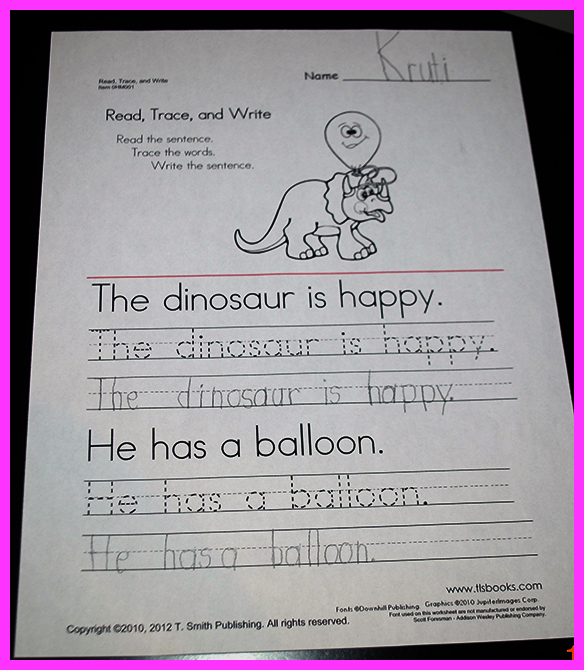 Read, Trace, and Write
Item 0HM001
Name Kruti
Read, Trace, and Write
Read the sentence.
Trace the words.
Write the sentence.
The dinosaur is happy.
The dinosaur is happy.
The dinosaur is happy.
He has a balloon.
He has a balloon.
He has a balloon.
www.tlsbooks.com
Fonts ©Downhill Publishing Graphics ©2010 JupiterImages Corp.
Font used on this worksheet are not manufactured or endorsed by
Scott Foresman - Addison Wesley Publishing Company
Copyright ©2010, 2012 T. Smith Publishing. All rights reserved.